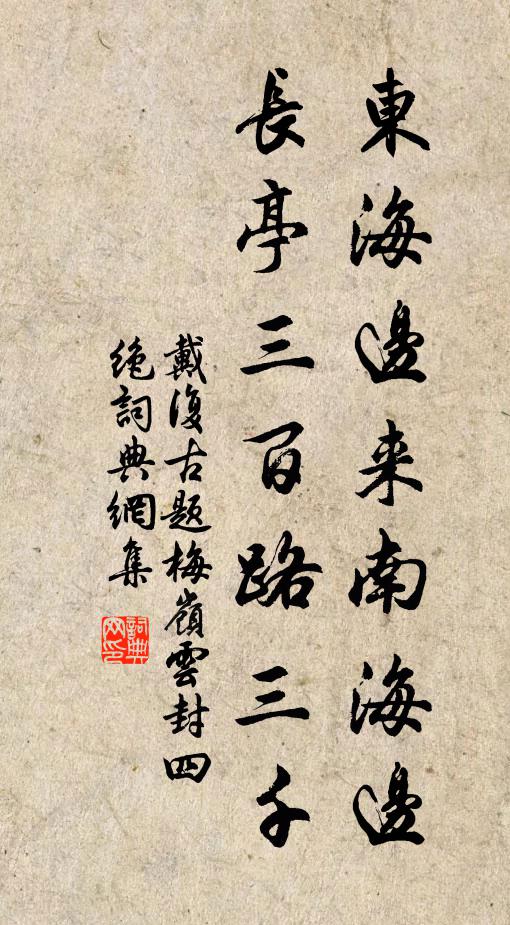 東海邊来南海邊
長亭三百路三千
戴復古题梅嶺雲封四
绝詞典網集
詞典
网印